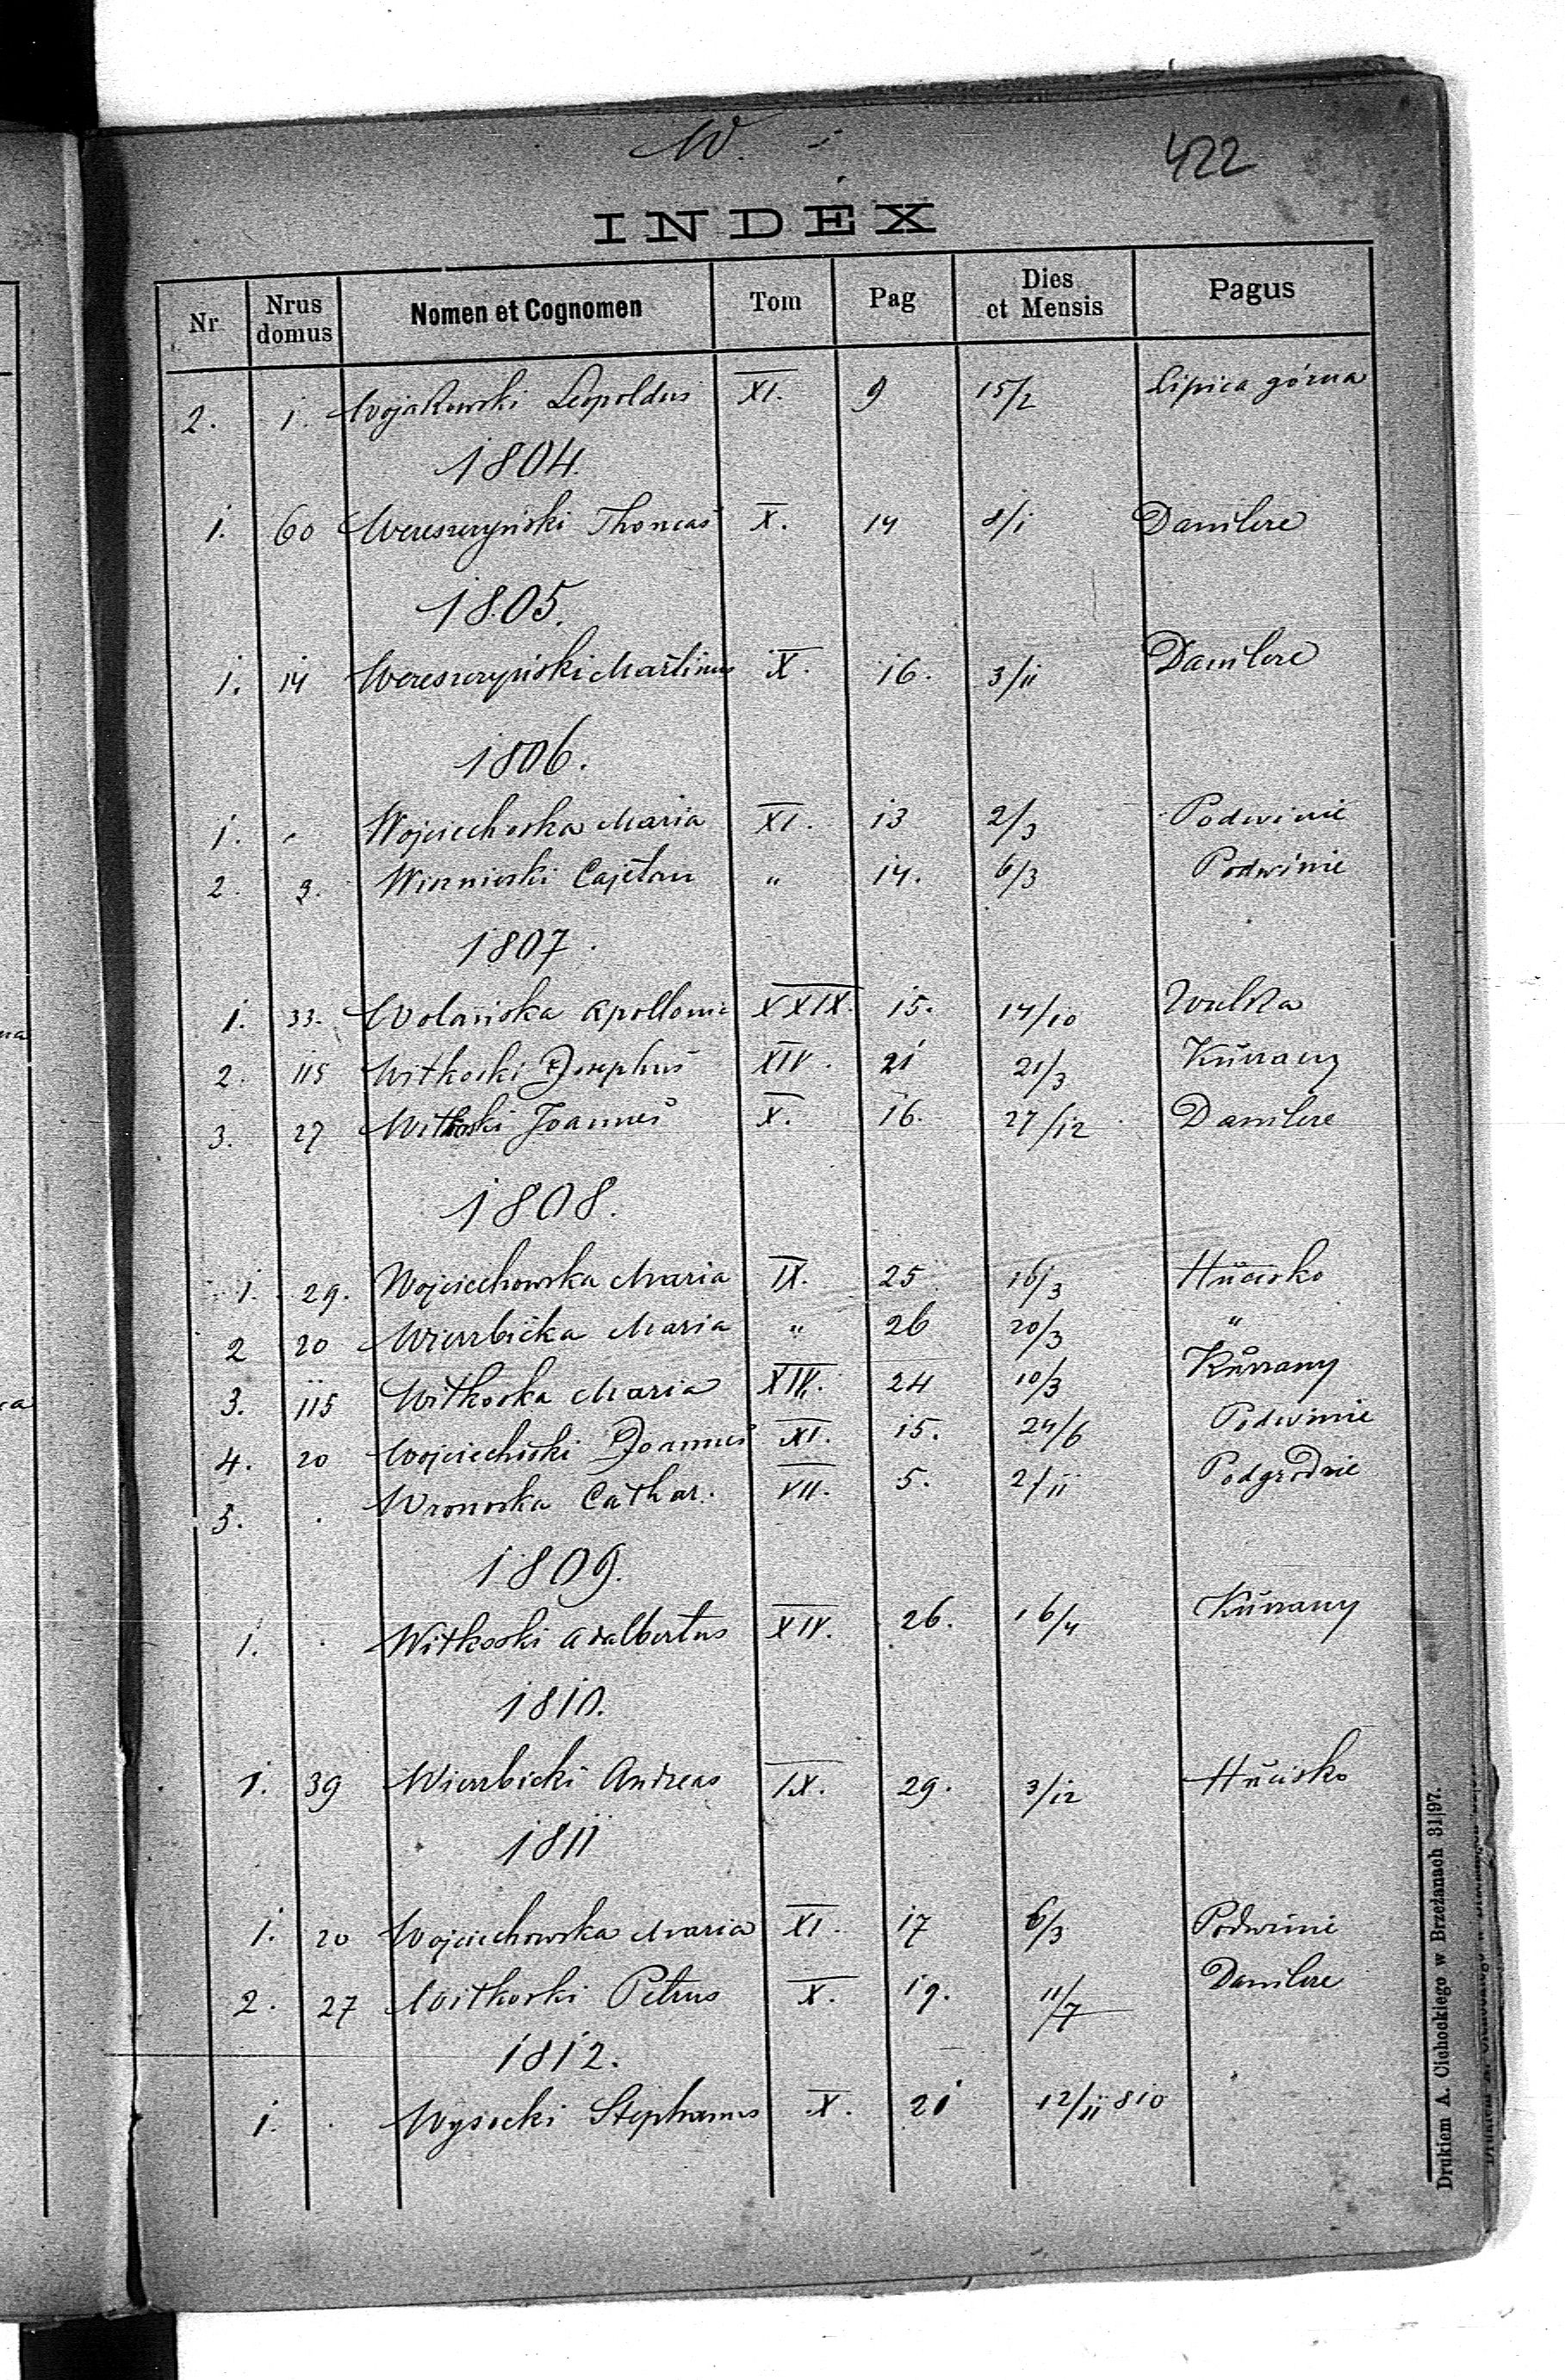 W.
422
INDEX
Nr Nrus domus Nomen et Cognomen Tom Pag Dies et Mensis Pagus
2. 1. Wojakowski Leopoldus XI. 9 15/2 Lipica górna
1804.
1. 60 Wereszczyński Thomas X. 14 8/1 Danilcze
1805.
1. 14 Wereszczyński Martinus X. 16. 3/11 Danilcze
1806.
1. - Wojciechoska Maria XI. 13 2/3 Podwinie
2. 3. Wisznioski Cajetan " 14. 6/3 Podwinie
1807.
1. 33. Wolańska Apollonia XXIX. 15. 14/10 Wulka
2. 115 Witkoski Josephus XIV. 21 21/3 Kurzany
3. 27 Witkoski Joannes X. 16. 27/12 Danilcze
1808.
1. 29. Wojciechowska Maria IX. 25 16/3 Hucisko
2 20 Wierzbicka Maria " 26 20/3 "
3. 115 Witkoska Maria XIV. 24 10/3 Kurzany
4. 20 Wojciechoski Joannes XI. 15. 24/6 Podwinie
5. . Wronoska Cathar. VII. 5. 2/11 Podgrodzie
1809.
1. . Witkoski Adalbertus XIV. 26. 16/4 Kurzany
1810.
1. 39 Wierzbicki Andreas IX. 29. 3/12 Hucisko
1811
1. 20 Wojciechowska Maria XI. 17 6/3 Podwinie
2. 27 Witkoski Petrus X. 19. 11/7 Danilcze
1812.
1. . Wysocki Stephanus X. 21 12/11 810
Drukiem A. Cichockiego w Brzeżanach 31|97.